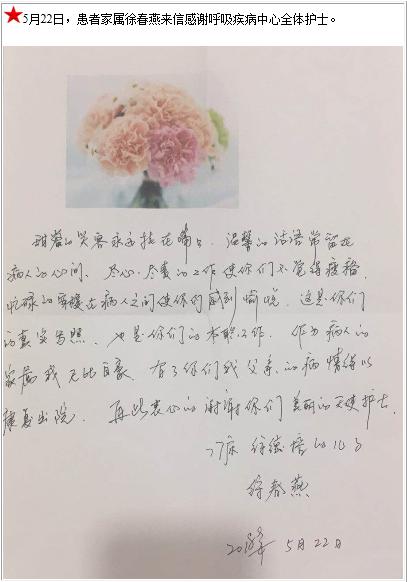 5月22日，患者家属徐春燕来信感谢呼吸疾病中心全体护士。
甜蜜的笑容永远挂在嘴上，温馨的话语常留在
病人的心间。尽心尽责的工作使你们不觉得疲倦，
忙碌的穿梭在病人之间使你们感到愉悦。这是你们
的真实写照，也是你们的本职工作。作为病人的
家属我无比自豪。有了你们我父亲的病情得以
康复出院。再此衷心的谢谢你们美丽的天使护士。
床 徐德 的儿子
徐春燕
5月22日